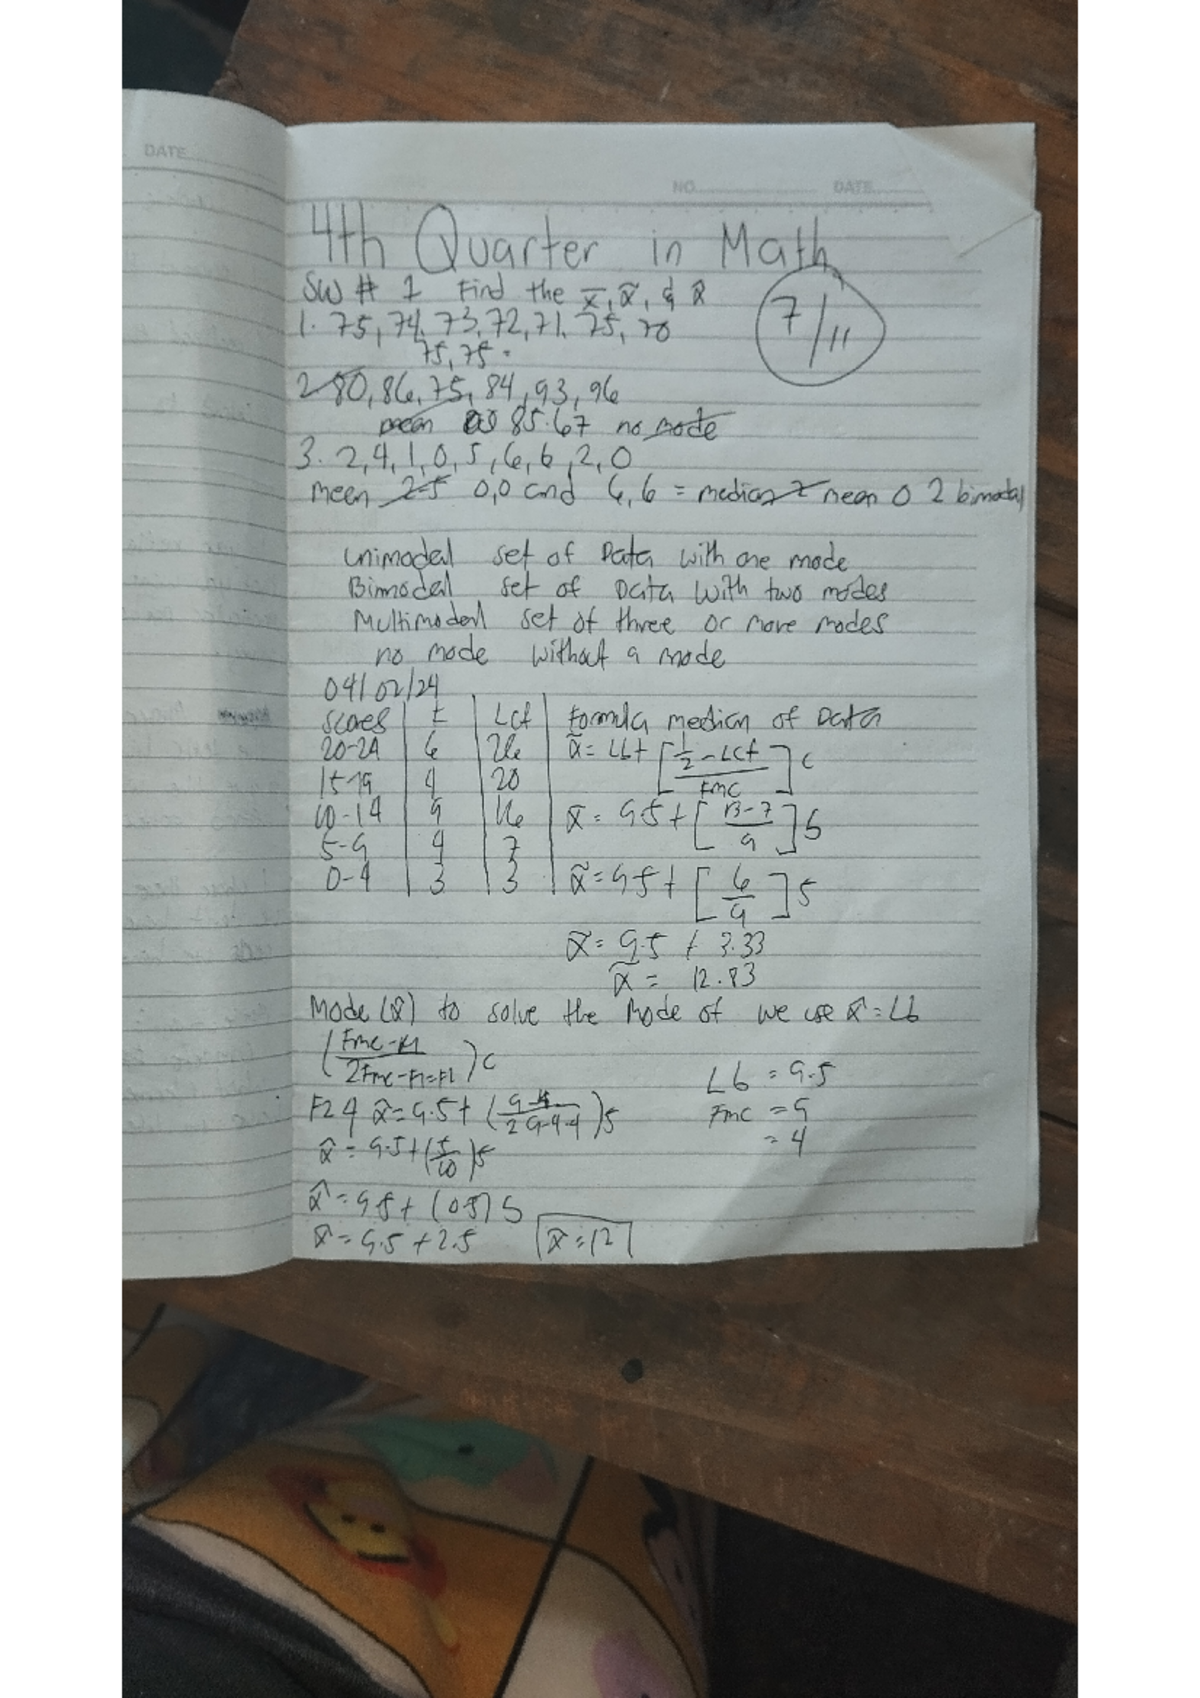 DATE
NO. DATE
4th Quarter in Math
SW # 1 Find the x̄, x̃, & x̂
7/11
1. 75, 74, 73, 72, 71, 75, 70
75, 75
2 80, 86, 75, 84, 93, 96
mean 85.67 no mode
3. 2, 4, 1, 0, 5, 6, 6, 2, 0
meen 2.5 0,0 and 6,6 = median 2 mean 0 2 bimodal
Unimodal set of Data with one mode
Bimodal set of Data with two modes
Multimodal set of three or more modes
no mode without a mode
04/02/24
scores f Lcf Formula median of Data
20-24 6 26 x̃ = Lb + [½ - Lcf / Fmc] c
15-19 4 20
10-14 9 16 x̃ = 9.5 + [13-7 / 9] 5
5-9 4 7
0-4 3 3 x̃ = 9.5 + [6 / 9] 5
x̃ = 9.5 + 3.33
x̃ = 12.83
Mode (x̂) to solve the Mode of we use x̂ = Lb
(Fmc - F1 / 2Fmc - F1 = F2) c
Lb = 9.5
F2 4 x̂ = 9.5 + (9-4 / 2 9-4-4) 5
Fmc = 9
= 4
x̂ = 9.5 + (5/10) 5
x̂ = 9.5 + (0.5) 5
x̂ = 9.5 + 2.5 x̂ = 12